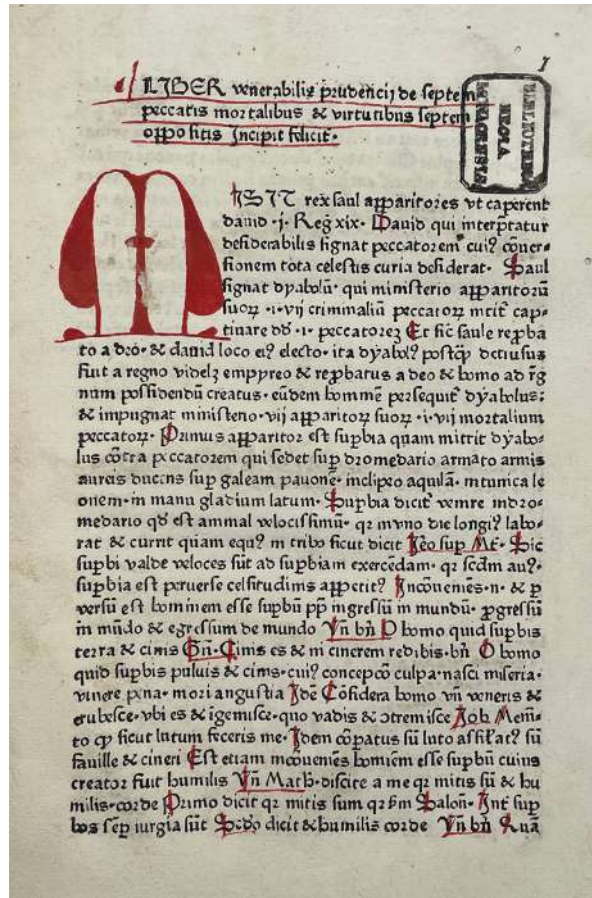 1
LIBER venerabilis prudencij de septem
peccatis mortalibus & virtutibus septem
oppositis Incipit felicit̄·
MISIT rex saul apparitores vt caperent
dauid ·j· Reḡ xix· Dauid qui interp̄tatur
desiderabilis signat peccatorem cui⁹ cōuer-
sionem tota celestis curia desiderat· Saul
signat dyabolū· qui ministerio apparitorū
suoꝝ ·i·vij criminaliū peccatoꝝ mīt cap-
tinare dd̄ ·i· peccatorez Et sic saule rep̄ba
to a dn̄o· & dauid loco ei⁹ electo· ita dyabol⁹ postq̄ deiusus
fuit a regno videlz empyreo & rep̄batus a deo & homo ad rēg
num possidendū creatus· eūdem hominē persequit̄ dyabolus:
& impugnat ministerio·vij apparitoꝝ suoꝝ ·i·vij mortalium
peccatoꝝ· Primus apparitor est sup̄bia quam mittit dyabo-
lus cōtra peccatorem qui sedet sup̄ dromedario armato armis
aureis ducens sup̄ galeam pauonē· inclipeo aquilā· intunica le
onem·in manu gladium latum· Sup̄bia dicit̄ venire indro-
medario qd̄ est animal velocissimū· qr invno die longi⁹ labo-
rat & currit quam equ⁹ in tribꝰ sicut dicit Jeō sup̄ Mt̄· Sic
sup̄bi valde veloces sūt ad sup̄biam exercēdam· qr scdm au⁹·
sup̄bia est peruerse celsitudinis appetit⁹ Incōueniēs·n· & p̱
versū est hominem esse sup̄bū pp̄ ingressū in mundū· p̱gressū
in mūdo & egressum de mundo Vn̄ bn̄ O homo quid sup̄bis
terra & cinis Gn̄· Cinis es & in cinerem redibis·bn̄ O homo
quid sup̄bis puluis & cinis·cui⁹ concepcō culpa·nasci miseria·
viuere pena·mori angustia Jdē Cōsidera homo vn̄ veneris &
erubesce·vbi es & īgemisce·quo vadis & ɔtremisce Job Memē-
to q̄ sicut lutum feceris me·Jdem cōpatus sū luto assil̄at⁹ sū
fauille & cineri Est etiam incōueniēs hominem esse sup̄bū cuius
creator fuit humilis Vn̄ Math̄·discite a me qr mitis sū & hu
milis·corde Primo dicit qr mitis sum qr s̄m Salon̄· Int̄ sup̄
bos semp̄ iurgia sūt Scdo dicit & humilis corde Vn̄ bn̄ Quā